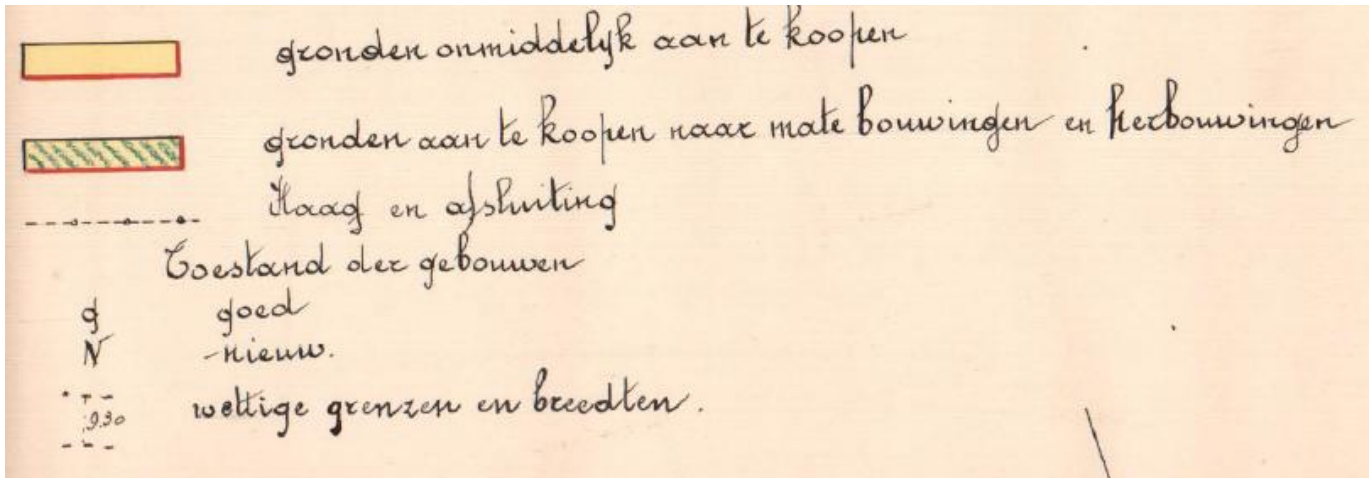 gronden onmiddelyk aan te koopen
gronden aan te koopen naar mate bouwingen en herbouwingen
Haag en afsluiting
Toestand der gebouwen
g goed
N nieuw.
9.30 wettige grenzen en breedten.